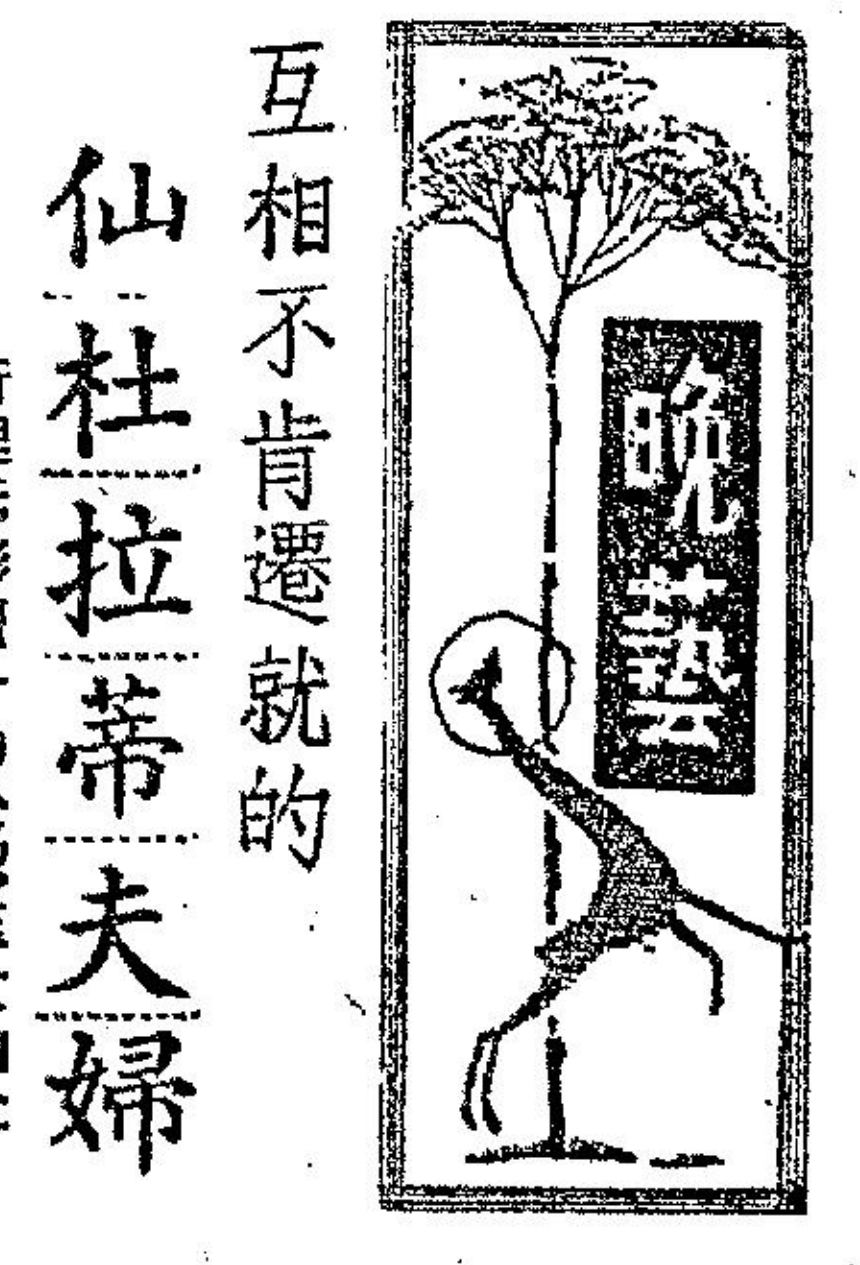 晚藝
互相不肯遷就的
仙杜拉蒂夫婦